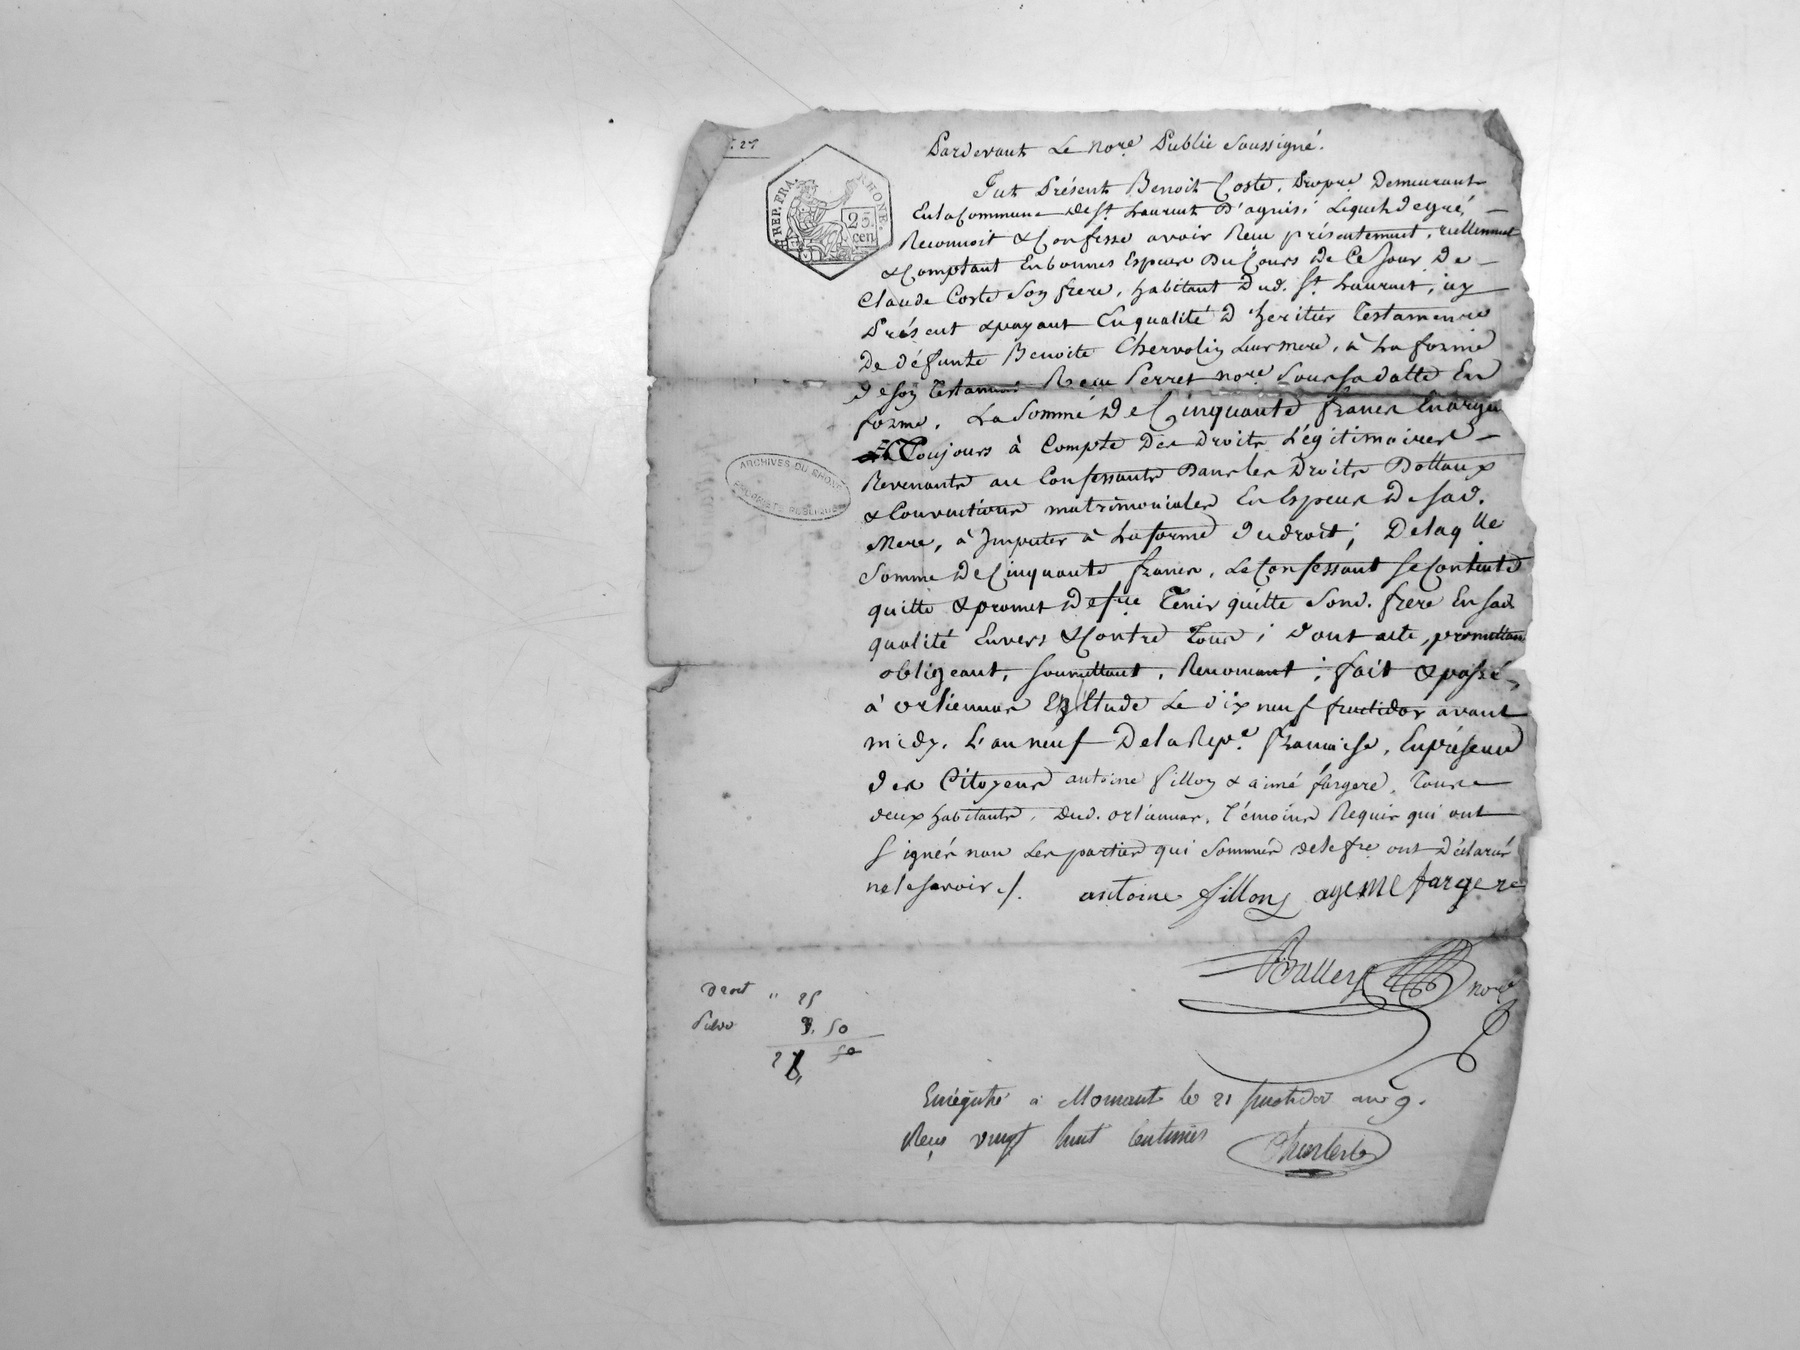 : 25
REP. FRA. RHONE.
25
cen
Pardevant Le no.re Public Soussigné.
Fut Présent Benoit Coste, Propre. Demeurant
En la Commune de St. Laurent D'agnis, Lequel de gré,
Reconnoit & Confesse avoir Reçu présentement, réellement
& Comptant En bonnes Especes Du Cours De Ce Jour De
Claude Coste Son frere, habitant Dud. St. Laurent, icy
Présent & payant En qualité D'heritier Testamentre
De défunte Benoite Chervolin Leur mere, à La forme
de son Testament Reçu Perret no.re Sous sa datte En
forme, La Somme De Cinquante francs En argt
Toujours à Compte Des Droits Légitimaires
Revenants au Confessant Dans les Droits Dottaux
& Conventions matrimoniales En Especes De sad.
Mere, à Imputer à La forme du droit; De laqlle
Somme De Cinquante francs, Le Confessant Se Contente
quitte & promet De fre Tenir quitte Sond. frere En sad
qualité Envers & Contre Tous; dont acte, promettant
obligeant, Soumettant, Renonçant; fait & passé
à orlienas En Etude Le dix neuf fructidor avant
midy. L'an neuf De la Rep.e française, En présence
des Citoyens antoine fillon & aimé fargere, Tous
deux habitants, Dud. orlienas, Témoins Requis qui ont
Signés non Les parties qui Sommés de le fre ont Déclarés
ne le savoir ./.
antoine fillon ayeme fargere
no.re
ARCHIVES DU RHONE
Droit " 25
50
50
Enrégistré à Mornant le 21 fructidor an 9.
Reçu vingt huit Centimes